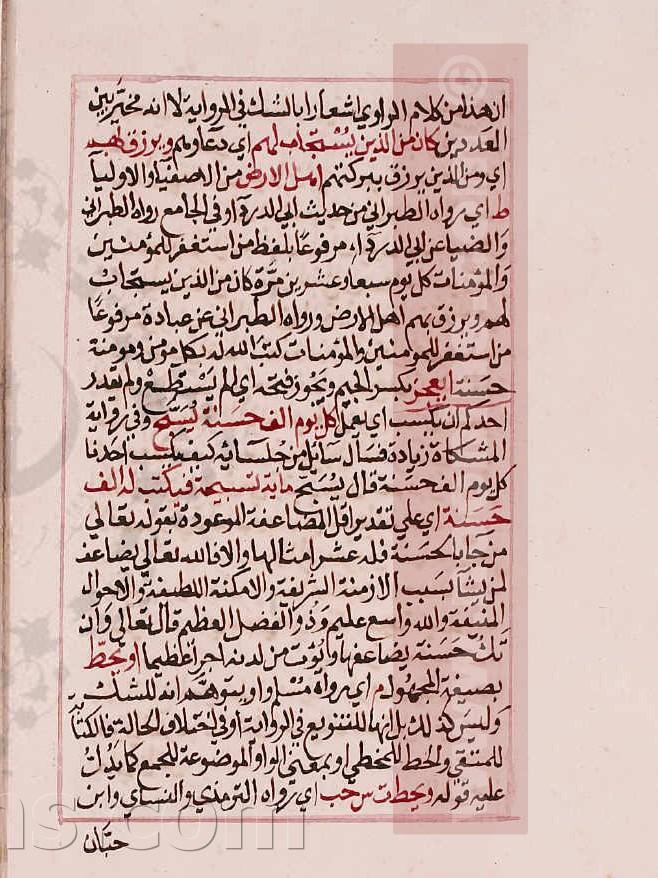 ان هذا من كلام الراوي اشعارا بالشك في الرواية لا انه مخير بين
العددين كان من الذين يستجاب لهم اي دعاوهم ويرزق بهم
اي ومن الذين يرزق ببركتهم اهل الارض من الاصفيآ والاوليآ
ط اي رواه الطبراني من حديث ابي الدردآ وفي الجامع رواه الطبراني
والضيا عن ابي الدردآ مرفوعا بلفظ من استغفر للمؤمنين
والمؤمنات كل يوم سبعا وعشرين مرة كان من الذين يستجاب
لهم ويرزق بهم اهل الارض ورواه الطبراني عن عبادة مرفوعا
من استغفر للمومنين والمومنات كتب الله له بكل مومن ومومنة
حسنة ايعجز بكسر الجيم ويجوز فتحه اي لم يستطع ولم يقدر
احدكم ان يكسب اي يعمل كل يوم الف حسنة يسبح وفي رواية
المشكاة زيادة فسال سائل من جلسائه كيف يكسب احدنا
كل يوم الف حسنة قال يسبح ماية تسبيحة فيكتب له الف
حسنة اي علي تقدير اقل المضاعفة الموعودة بقوله تعالي
من جا بالحسنة فله عشر امثالها والا فالله تعالي يضاعف
لمن يشآ بسبب الازمنة الشريفة والامكنة اللطيفة والاحوال
المنيفة والله واسع عليم وذو الفضل العظيم قال تعالي وان
تك حسنة يضاعفها ويؤت من لدنه اجرا عظيما او يحط
بصيغة المجهول م اي رواه مسلم واو يتوهم انه للشك
وليس كذلك بل انها للتنويع في الرواية او في اختلاف الحالة فالكتب
للمتقي والحط للمخطي او بمعني الواو الموضوعة للجمع كما يدل
عليه قوله ويحط ت س حب اي رواه الترمذي والنساي وابن
حبان